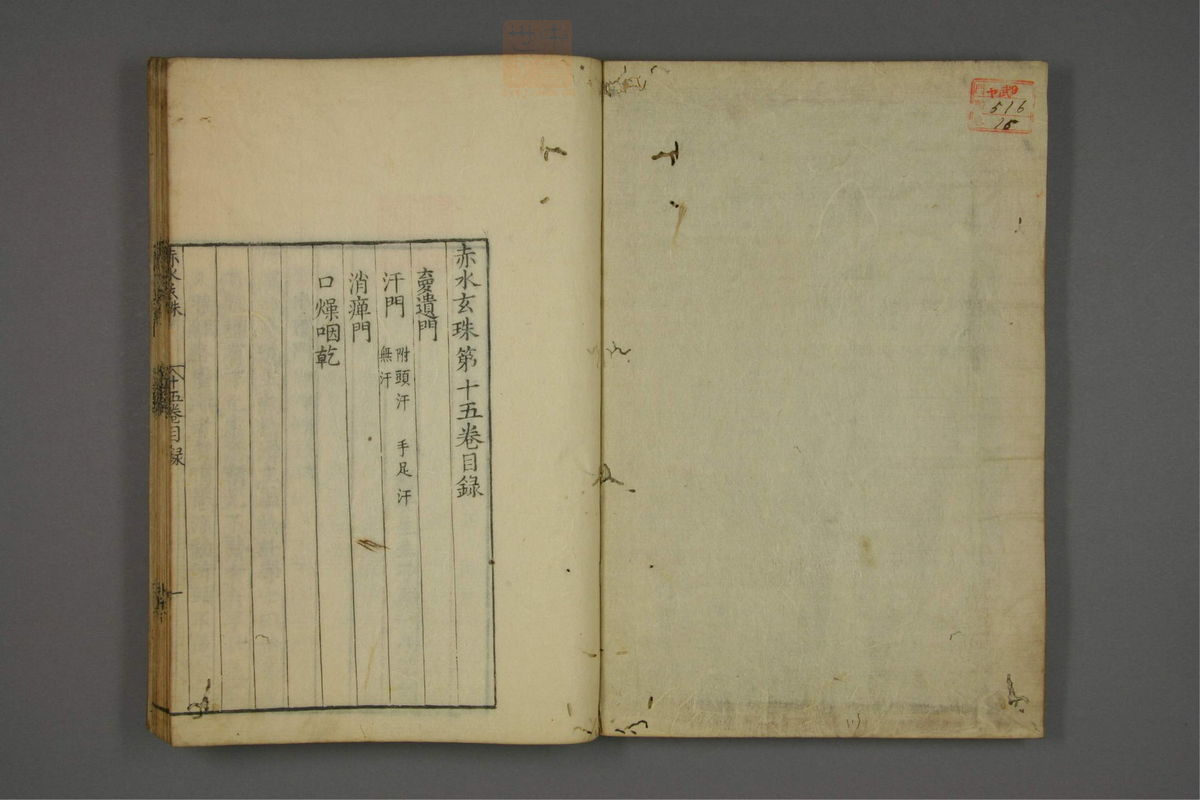 ヤ武9
516
15
赤水玄珠第十五卷目錄
夢遺門
汗門 附頭汗 手足汗
無汗
消癉門
口燥咽乾
赤水玄珠
十五卷目錄
一